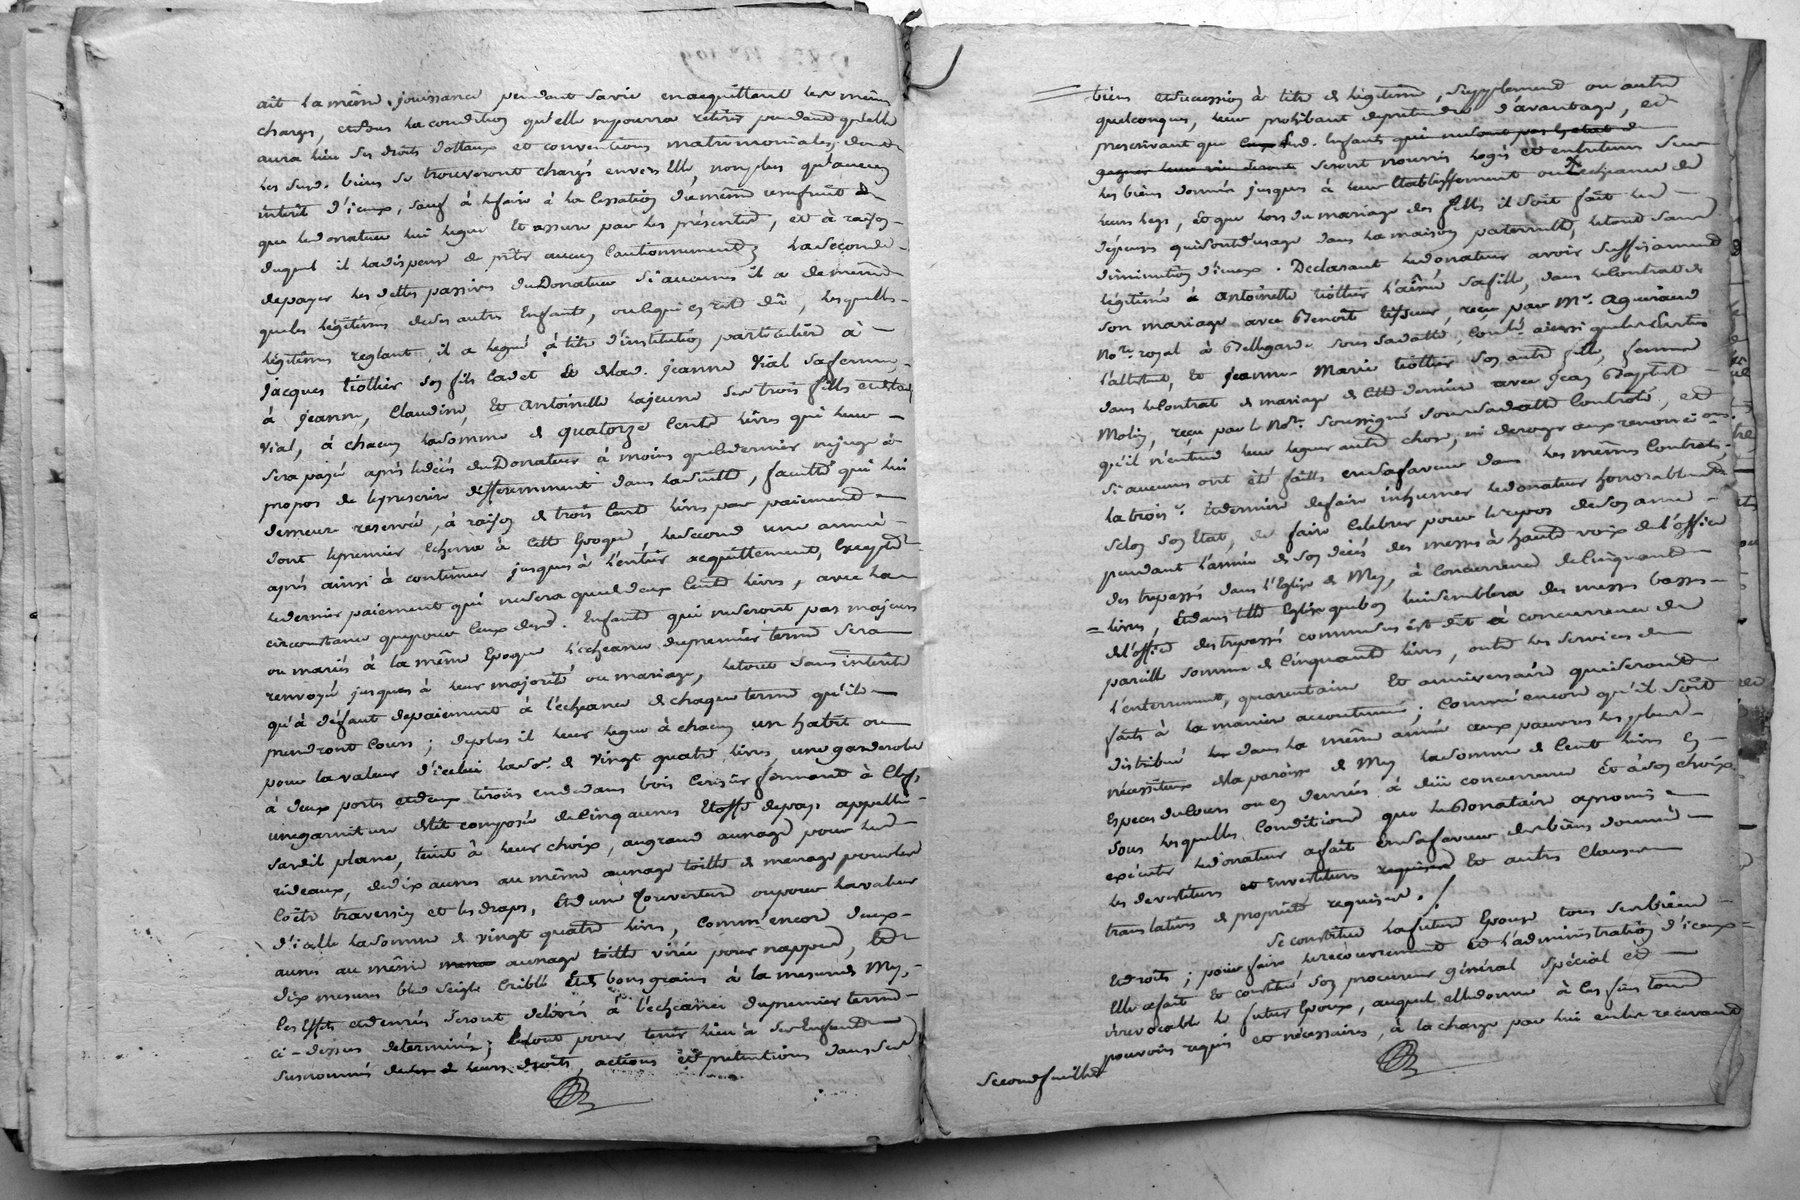 ait la même jouissance pendant sa vie en acquittant les mêmes
charges, et sous la condition qu'elle ne pourra retirer pendant qu'elle
aura lieu ses droits dottaux et conventions matrimoniales, dont
les susd. biens se trouveront chargés envers elle, non plus qu'aucun
intérêt d'iceux, sauf à le faire à la cessation du même usufruit
que le donateur lui legue et assure par les présentes, et à raison
duquel il la dispense de prêter aucun cautionnement; la seconde
de payer les dettes passives du Donateur si aucunes il a de même
que les légitimes de ses autres Enfants, ou ce qui en reste dû, lesquelles
légitimes reglant, il a legué à titre d'institution particulière à
Jacques tiollier son fils cadet et de lad. Jeanne Vial sa femme,
à Jeanne, Claudine, et Antoinette la jeune ses trois filles et de lad.
Vial, à chacun la somme de quatorze cents livres qui leur
sera payée après le décès du Donateur à moins que le dernier ne juge à
propos de le prescrire différemment dans la suitte, faculté qui lui
demeure reservée, à raison de trois cents livres par paiement
dont le premier echerra à cette Epoque, le second une année
après ainsi à continuer jusques à l'entier acquittement, Excepté
le dernier paiement qui ne sera que de deux cents livres, avec la
circonstance que pour ceux desd. Enfants qui ne seront pas majeurs
ou mariés à la même Epoque l'échéance du premier terme sera
renvoyé jusques à leur majorité ou mariage, le tout sans intérêts
qu'à défaut de paiement à l'échéance de chaque terme qu'ils
prendront cours; de plus il leur legue à chacun un habit ou
pour la valeur d'icelui la so.e de vingt quatre livres une garderobe
à deux portes et deux tiroirs en dedans bois cerisier fermant à clef,
une garniture de lit composée de cinq aunes Etoffe de pays appellée
sardil plane, teint à leur choix, au grand aunage pour les
rideaux, de dix aunes au même aunage toille de menage pour les
coëtre traversin et les draps, et d'une Couverture ou pour la valeur
d'icelle la somme de vingt quatre livres, comm'encor deux
aunes au même aunage toille virée pour nappes, et
dix mesures bled seigle criblé et de bons grains à la mesure de Mey,
ces Effets et denrées seront délivrés à l'échéance du premier terme
ci-dessus determiné; le tout pour tenir lieu à ses Enfants
susnommés de leurs droits, actions et prétentions dans ses
biens et succession à titre de légitime, supplement ou autre
quelconques, leur prohibant de prétendre d'avantage, et
prescrivant que lesd. Enfants qui ne sont pas en etat de
gagner leur vie seront nourris logés et entretenus sur
les biens donnés jusques à leur Etablissement ou Echéance de
leurs legs, et que lors du mariage des filles il soit fait les
dépenses qui sont d'usage dans la maison paternelle, le tout sans
diminution d'iceux. Declarant le donateur avoir suffisamment
légitimé à Antoinette tiollier l'aînée sa fille, dans le Contrat de
son mariage avec Benoit, reçu par M.e Aguiraud
No.re royal à Bellegarde sous sa datte, Con.lé ainsi que les Parties
l'attestent, et Jeanne-Marie tiollier son autre fille, femme
dans le Contrat de mariage de cette derniere avec Jean Baptiste
Molin, reçu par le No.re soussigné sous sa datte Controlé, et
qu'il n'entend leur leguer autre chose, ni deroger aux renonciaons
si aucunes ont été faites en sa faveur dans les mêmes Contrats,
la trois.e et derniere de faire inhumer le donateur honorablement
selon son Etat, de faire celebrer pour le repos de son ame
pendant l'année de son décès des messes à haute voix de l'office
des trepassés dans l'Eglise de Mey, à concurrence de cinquante
livres, Et dans telle Eglise que bon lui semblera des messes basses
de l'office des trepassés comme dessus est dit à concurrence de
pareille somme de cinquante livres, outre les services de
l'enterrement, quarantaine et anniversaire qui seront
faits à la maniere accoutumée; Comm'encore qu'il soit
distribué dans la même année aux pauvres les plus
nécessiteux de la paroisse de Mey la somme de cent livres en
Especes de cours ou en denrées à düe concurrence et à son choix
sous lesquelles Conditions que le Donataire a promis
exécuter le donateur a fait en sa faveur des biens donnés
les devestitures et investitures requises et autres clauses
translatives de propriété requises.
Se constitue la future Epouse tous ses biens
et droits; pour faire le recouvrement et l'administration d'iceux
Elle a fait et constitué son procureur général spécial et
irrevocable le futur Epoux, auquel elle donne à ces fins tous
pouvoirs requis et nécessaires, à la charge par lui en les recevant
Second feuillet